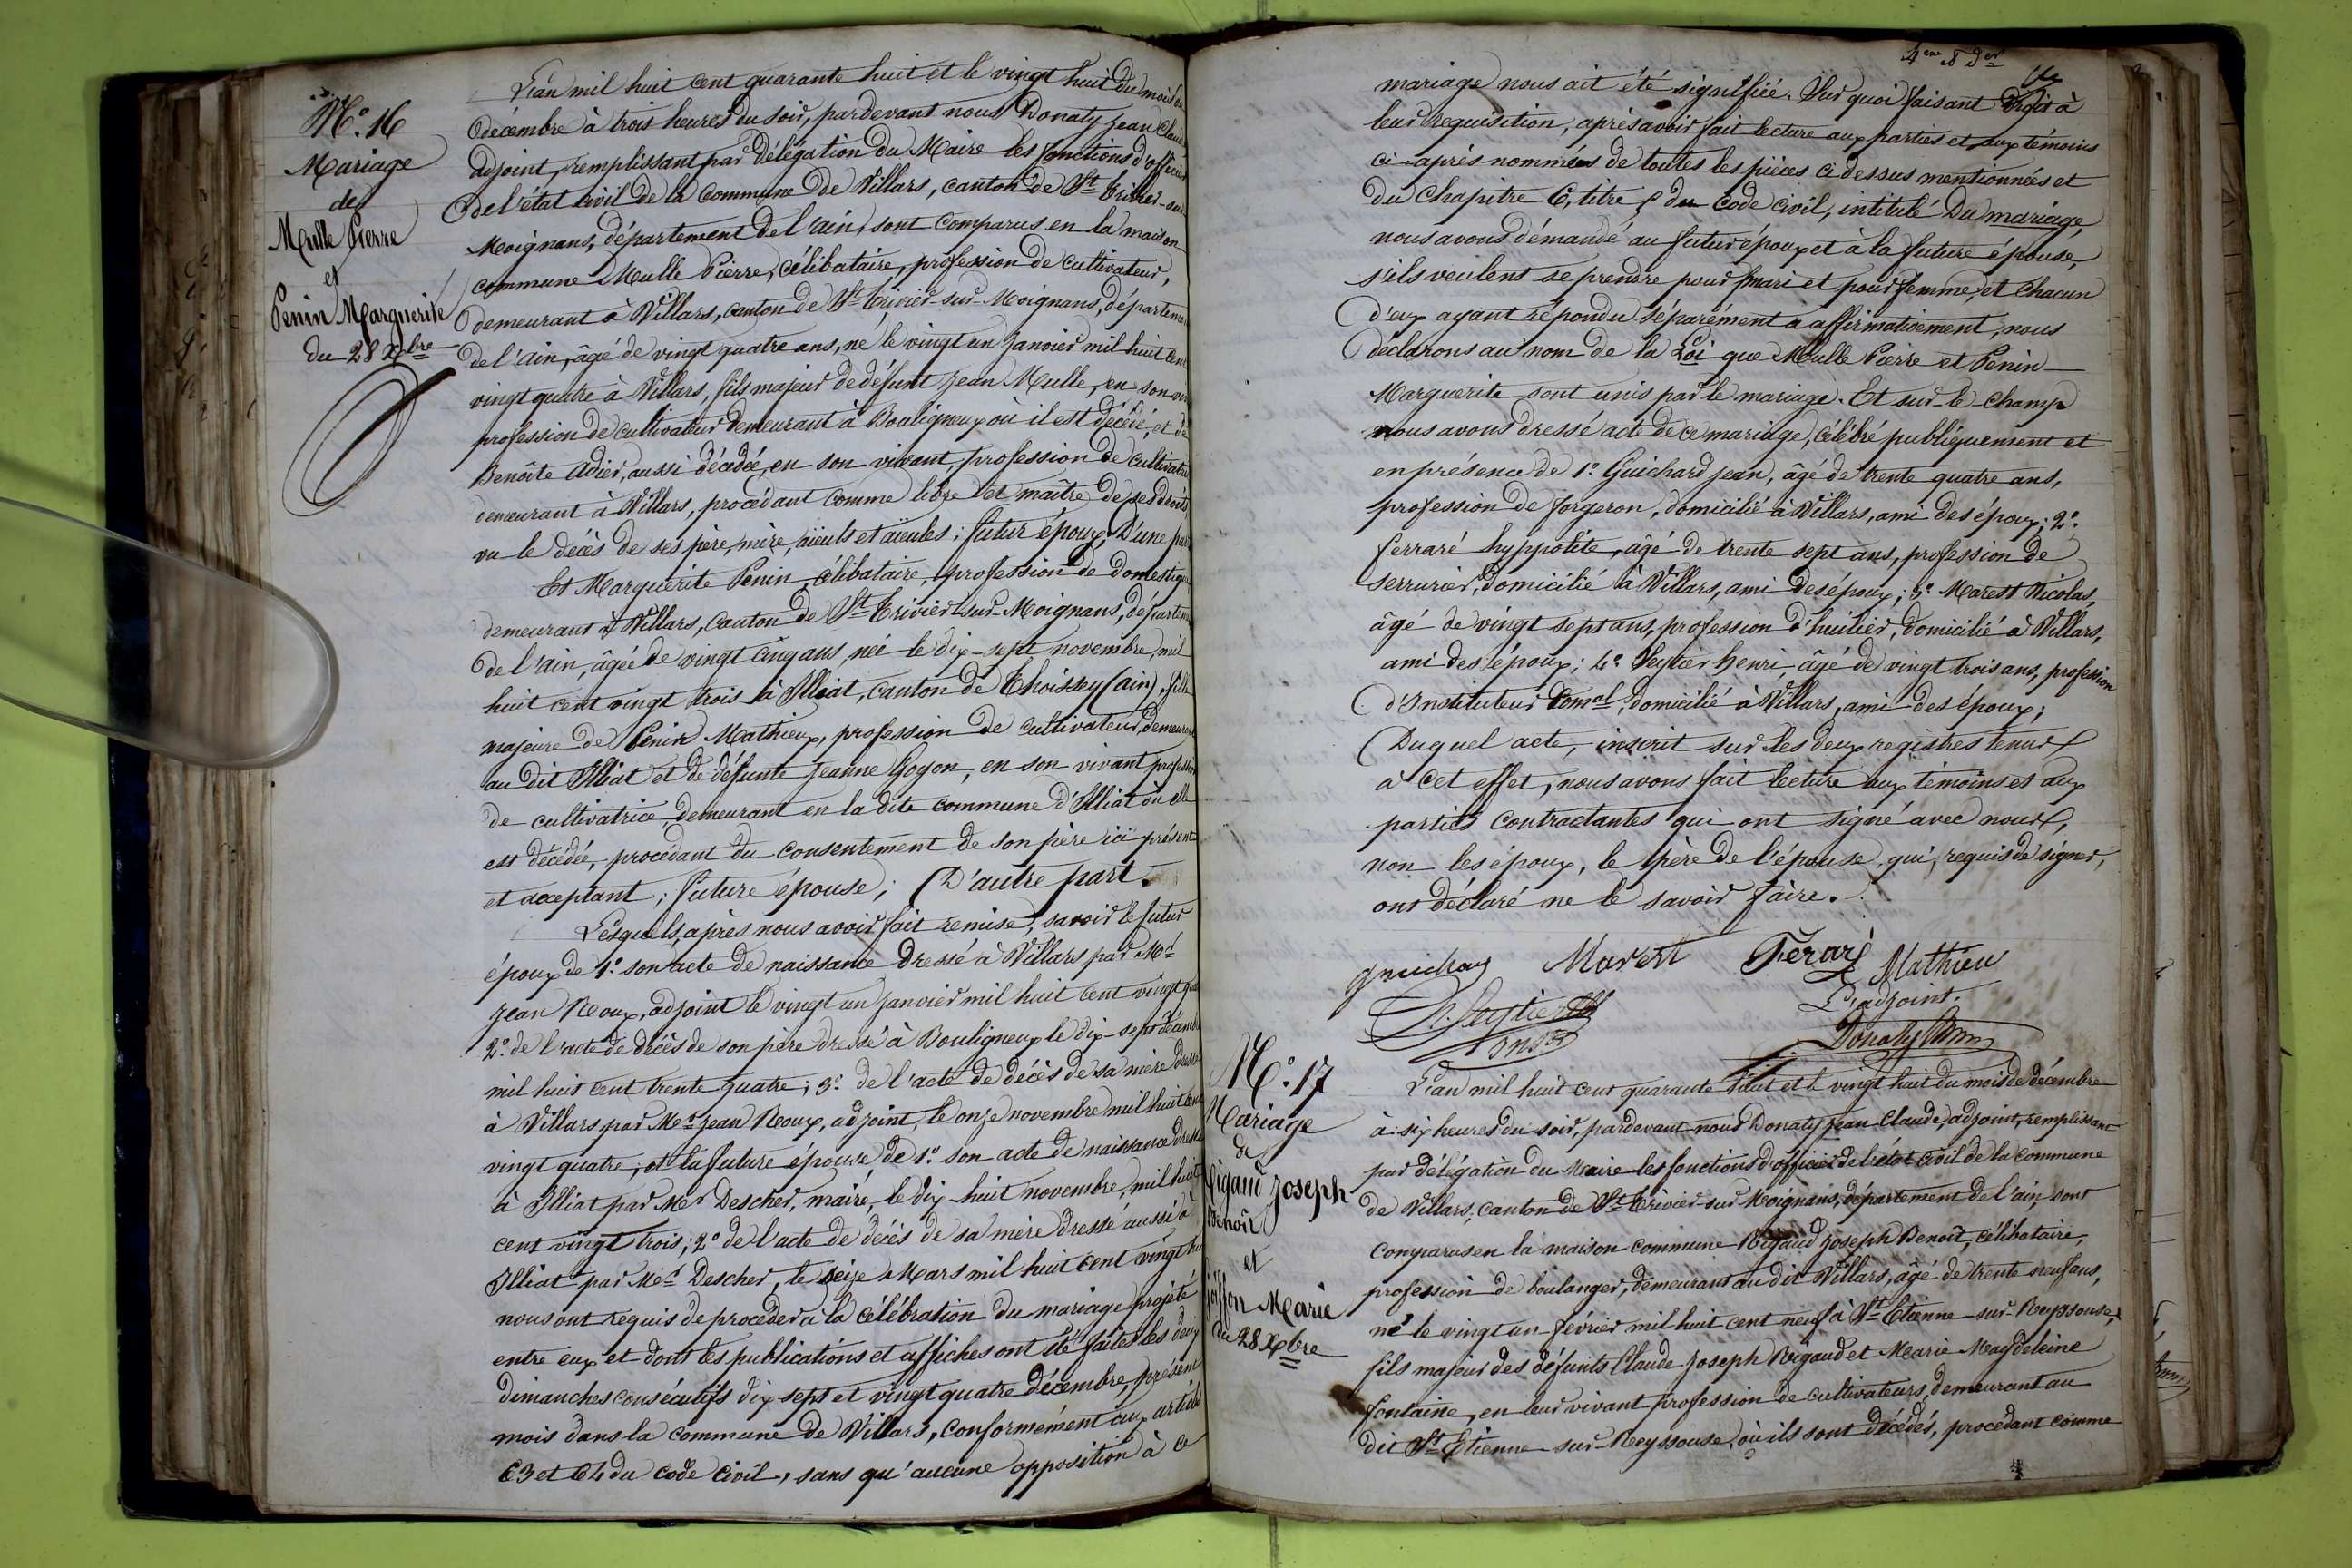 N.° 16
Mariage
de
Mulle Pierre
et
Penin Marguerite
du 28 Xbre
L'an mil huit cent quarante huit et le vingt huit du mois de
décembre à trois heures du soir, pardevant nous Donaty Jean Claude
adjoint, remplissant par délégation du Maire les fonctions d'officier
de l'état civil de la commune de Villars, canton de St Trivier-sur-
Moignans, département de l'ain, sont comparus en la maison
commune Mulle Pierre, célibataire, profession de cultivateur,
demeurant à Villars, canton de St Trivier-sur-Moignans, département
de l'ain, âgé de vingt quatre ans, né le vingt un Janvier mil huit cent
vingt quatre à Villars, fils majeur de défunt Jean Mulle, en son viv
profession de cultivateur demeurant à Bouligneux où il est décédé, et de
Benoîte Adier, aussi décédée, en son vivant, profession de cultivatrice
demeurant à Villars, procédant comme libre et maître de ses droits
vu le décès de ses père, mère, aïeuls et aïeules; futur époux, D'une part
Et Marguerite Penin, célibataire, profession de domestique
demeurant à Villars, canton de St Trivier-sur-Moignans, départeme
de l'ain, âgée de vingt cinq ans, née le dix-sept novembre, mil
huit cent vingt trois à Illiat, canton de Thoissey (ain), fille
majeure de Penin Mathieux, profession de cultivateur, demeurant
au dit Illiat et de défunte Jeanne Goyon, en son vivant profession
de cultivatrice demeurant en la dite commune d'Illiat où elle
est décédée, procédant du consentement de son père ici présent
et acceptant; future épouse; D'autre part.
Lesquels, après nous avoir fait remise, savoir le futur
époux de 1.° son acte de naissance dressé à Villars par Mr
Jean Roux, adjoint le vingt un Janvier mil huit cent vingt qua
2.° de l'acte de décès de son père dressé à Bouligneux le dix-sept décembre
mil huit cent trente quatre; 3.° de l'acte de décès de sa mère dressé
à Villars par Mr Jean Roux, adjoint, le onze novembre mil huit cent
vingt quatre; et la future épouse de 1.° son acte de naissance dressé
à Illiat par Mr Descher, maire, le dix-huit novembre, mil huit
cent vingt trois; 2° de l'acte de décès de sa mère dressé aussi à
Illiat par Mr Descher, le seize Mars mil huit cent vingt hu
nous ont requis de procéder à la célébration du mariage projeté
entre eux et dont les publications et affiches ont été faites les deux
dimanches consécutifs dix sept et vingt quatre décembre, présent
mois dans la commune de Villars, conformément aux articles
63 et 64 du code civil, sans qu'aucune opposition à ce
mariage nous ait été signifiée. Sur quoi faisant droit à
leur requisition, après avoir fait lecture aux parties et aux témoins
ci-après nommées de toutes les pièces ci dessus mentionnées et
du chapitre 6, titre 5 du Code civil, intitulé Du mariage,
nous avons démandé au futur époux et à la future épouse,
s'ils veulent se prendre pour mari et pour femme, et chacun
d'eux ayant répondu séparément a affirmativement, nous
déclarons au nom de la Loi que Mulle Pierre et Penin
Marguerite sont unis par le mariage. Et sur-le-champ
nous avons dressé acte de ce mariage, célébré publiquement et
en présence de 1.° Guichard Jean, âgé de trente quatre ans,
profession de forgeron, domicilié à Villars, ami des époux; 2.°
Ferraré hyppolite, âgé de trente sept ans, profession de
serrurier, domicilié à Villars, ami des époux; 3.° Marest Nicolas,
âgé de vingt sept ans, profession d'huilier, domicilié à Villars,
ami des époux; 4.° Seytier henri, âgé de vingt trois ans, profession
d'Instituteur Comal, domicilié à Villars, ami des époux;
Duquel acte, inscrit sur les deux registres tenus
à cet effet, nous avons fait lecture aux témoins et aux
parties contractantes qui ont signé avec nous,
non les époux, le père de l'épouse, qui, requis de signer,
ont déclaré ne le savoir faire.
Guichard Marest Feraré Mathieu
L'adjoint.
h. Seytier
Donaty
N.° 17
Mariage
de
Rigaud Joseph
Benoît
et
Marie
du 28 Xbre
L'an mil huit cent quarante huit et le vingt huit du mois de décembre
à six heures du soir, pardevant nous Donaty Jean Claude, adjoint, remplissant
par délégation du Maire les fonctions d'officier de l'état civil de la commune
de Villars, canton de St Trivier-sur-Moignans, département de l'ain, sont
comparus en la maison commune Rigaud Joseph Benoît, célibataire,
profession de boulanger, demeurant au dit Villars, âgé de trente neuf ans,
né le vingt un février mil huit cent neuf à St Etienne-sur-Reyssouse,
fils majeur des défunts Claude Joseph Rigaud et Marie Magdeleine
fontaine, en leur vivant profession de cultivateurs, demeurant au
dit St Etienne-sur-Reyssouse, où ils sont décédés, procédant comme